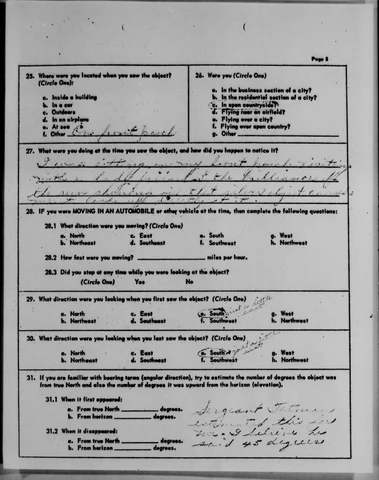 Page 3
25. Where were you located when you saw the object?
(Circle One):
a. Inside a building
b. In a car
c. Outdoors
d. In an airplane
e. At sea
f. Other On front porch
26. Were you (Circle One)
a. In the business section of a city?
b. In the residential section of a city?
c. In open countryside?
d. Flying near an airfield?
e. Flying over a city?
f. Flying over open country?
g. Other
27. What were you doing at the time you saw the object, and how did you happen to notice it?
I was sitting on my front porch visiting
with a lady friend & the brilliance of
the sun shining on that
28. IF you were MOVING IN AN AUTOMOBILE or other vehicle at the time, then complete the following questions:
28.1 What direction were you moving? (Circle One)
a. North c. East e. South g. West
b. Northeast d. Southeast f. Southwest h. Northwest
28.2 How fast were you moving? miles per hour.
28.3 Did you stop at any time while you were looking at the object?
(Circle One) Yes No
29. What direction were you looking when you first saw the object? (Circle One)
a. North c. East e. South g. West
b. Northeast d. Southeast f. Southwest h. Northwest
30. What direction were you looking when you last saw the object? (Circle One)
a. North c. East e. South g. West
b. Northeast d. Southeast f. Southwest h. Northwest
31. If you are familiar with bearing terms (angular direction), try to estimate the number of degrees the object was
from true North and also the number of degrees it was upward from the horizon (elevation).
31.1 When it first appeared:
a. From true North degrees.
b. From horizon degrees.
31.2 When it disappeared:
a. From true North degrees.
b. From horizon degrees.
Sergeant
estimated this for
me. I believe he
said 45 degrees